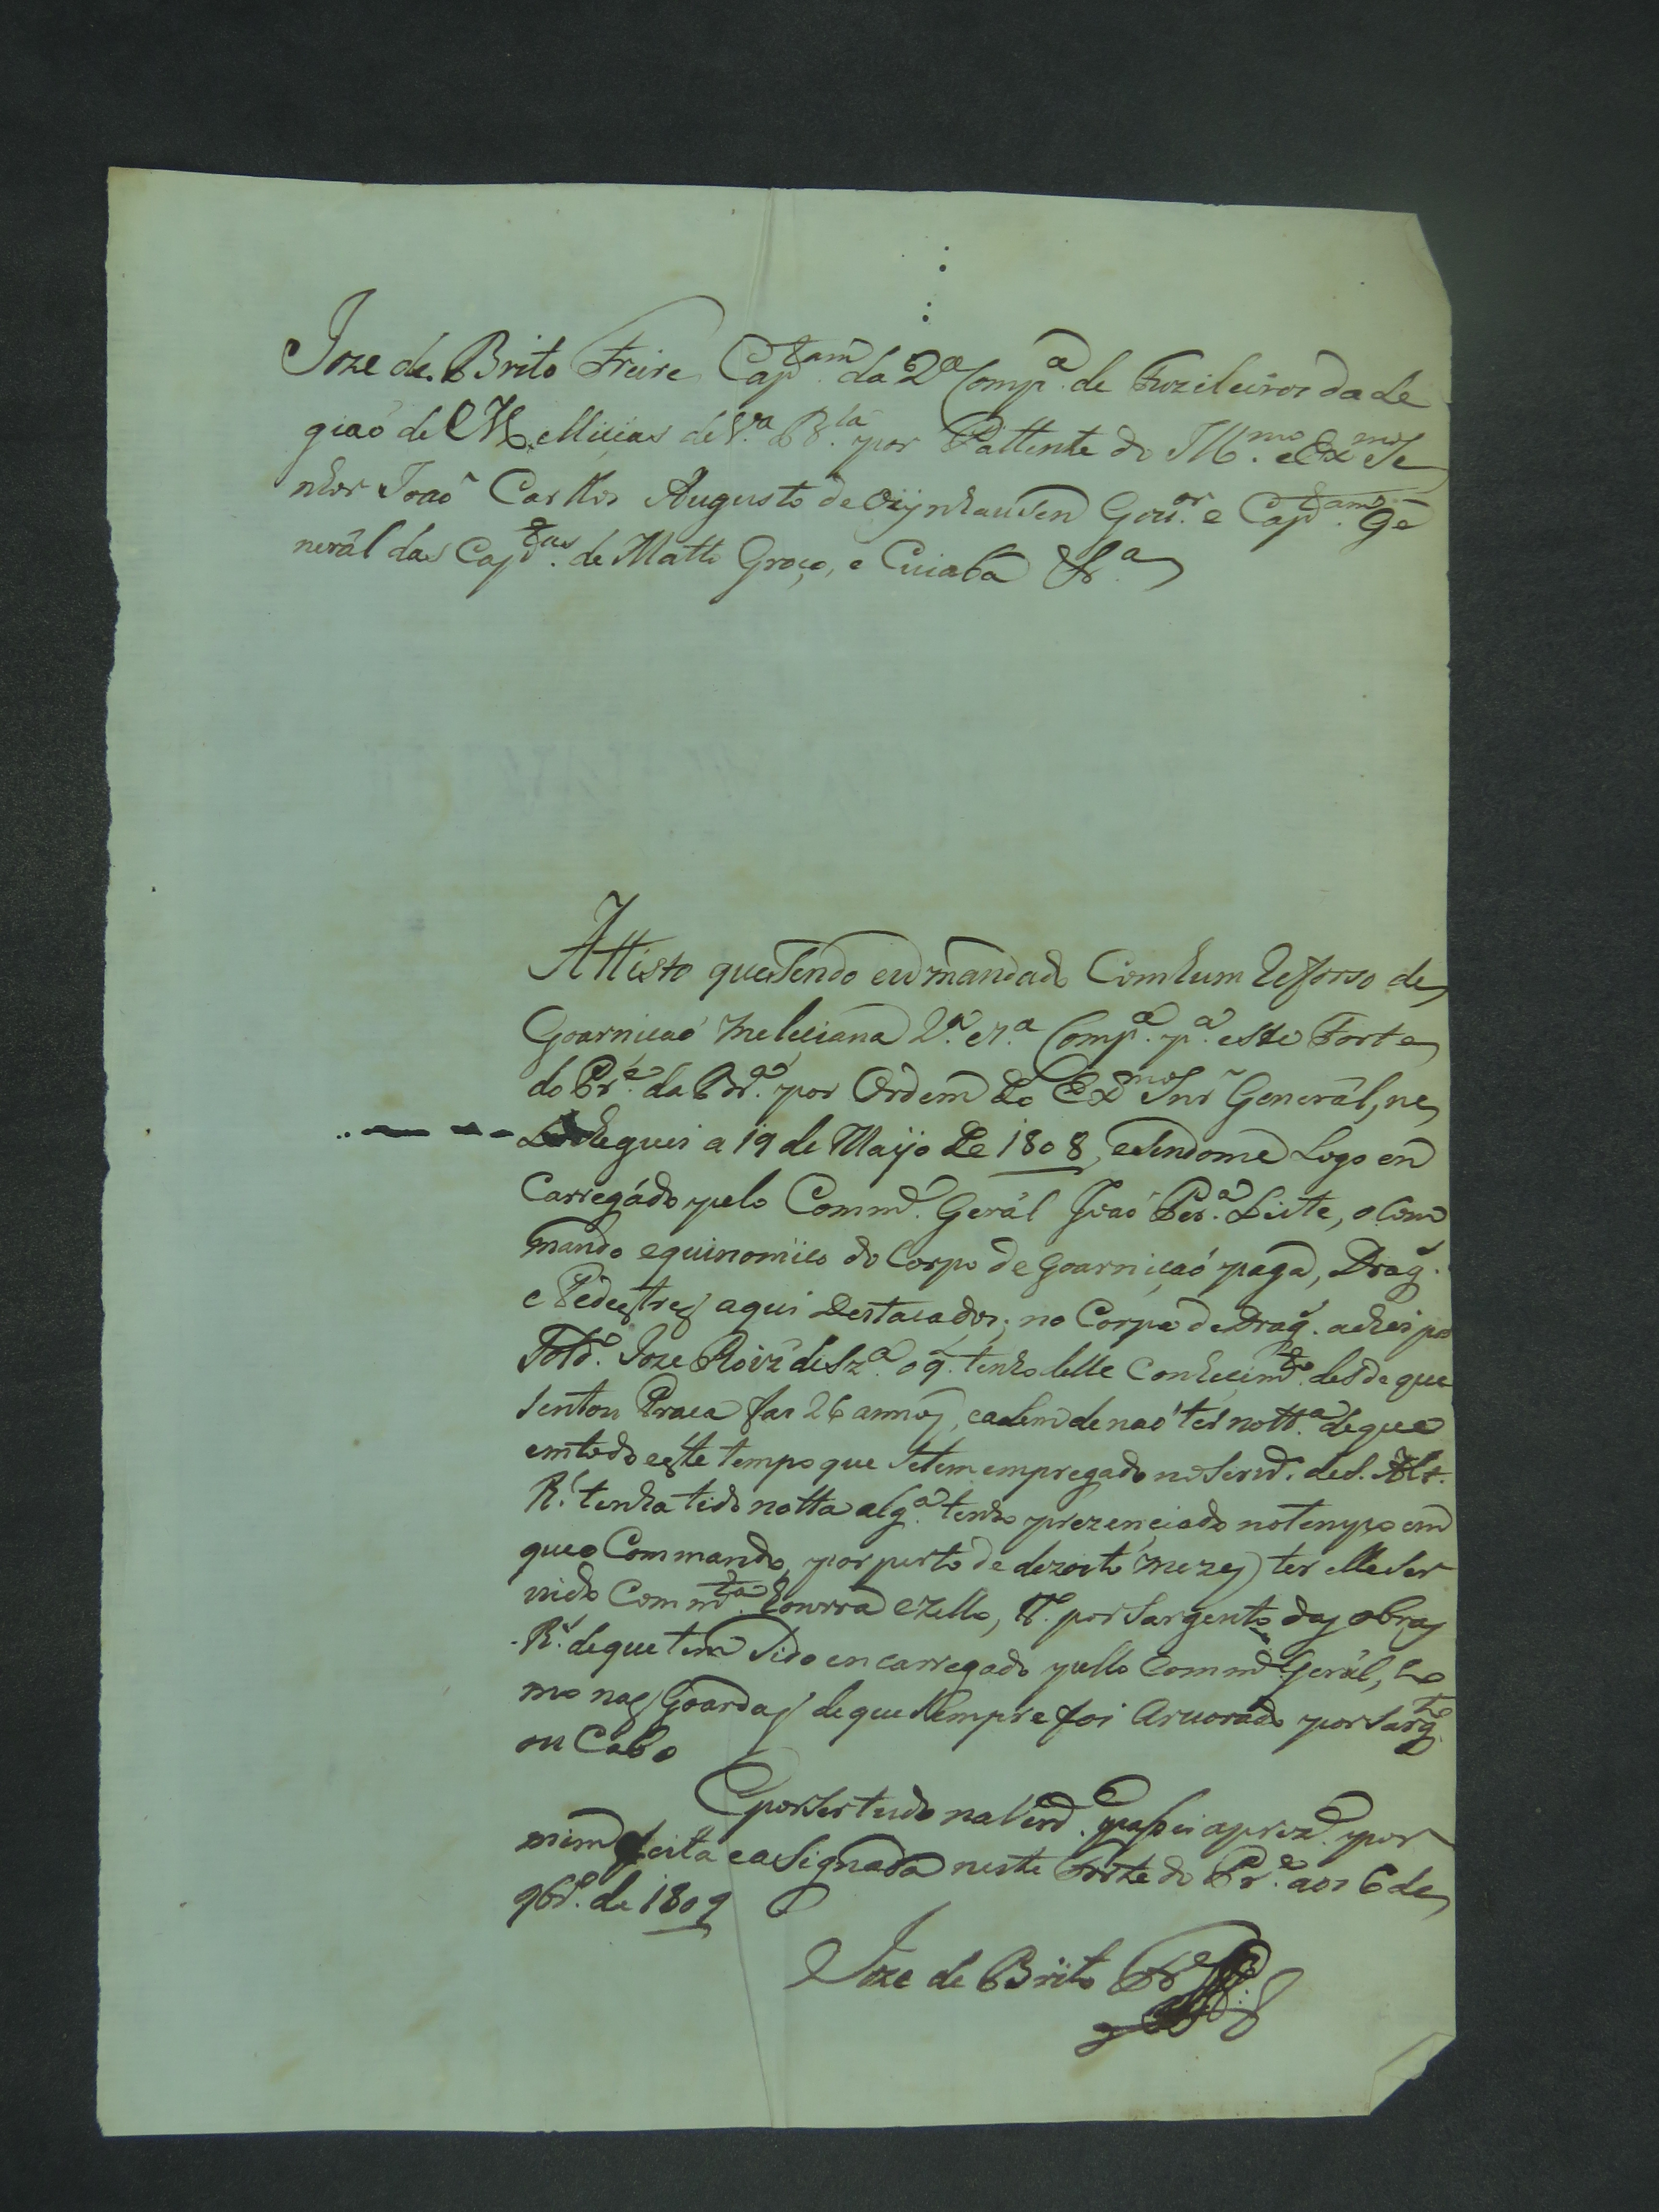 Joze de Brito Freire Cap.tam da 2ª Comp.ª de Fuzileiros da Le
giaõ de Mellicias de V.ª B.la por Pattente do Ill.mo e Ex.mo Se
nhor Joaõ Carllos Augusto de Oijnhausen Gov.or e Cap.tam Ge
neral das Cap.tas de Matto Groço, e Cuiaba &.ª
Attesto que sendo eu mandado Com hum Refforso de
Goarnicaõ Meleciana 2.ª e 7.ª Comp.ª p.ª este Forte
do Pr.e da Br.ª por Ordem do Ex.mo Snr General, ne
Le cheguei a 19 de Maijo de 1808, e sendome Logo en
Carregádo pelo Comm.e Gerál Joaõ Per.ª Leite, o Com
mando equinomiico do Corpo de Goarnicaõ paga, Drag.
e Pedestres aqui Destacados; no Corpo de Drag. achei po
Sold.º Joze Roiz de Sz.ª o q. tenho delle Conhecim.to desde que
Sentou Praca fas 26 annos, e alem de naõ ter nott.ª de que
em todo este tempo que se tem empregado no Serv.º de S. Alt.
R. tenha tido notta alg.ª tenho prezenciado no tempo em
que o Commando, por perto de dezoito mezes ter elle Ser
vido Com m.ta Honrra e Zello, por Sargento das obras
R.s de que tem sido encarregado pello Comm.e Geral, Co
mo nas Goardas de que Sempre foi Arvorado por Sarg.to
ou Cabo
E por ser tudo na Verd.e passei a prez.e por
mim feita e asignada neste Forte do Pr.e aos 6 de
9br.º de 1809
Joze de Brito Fr.e